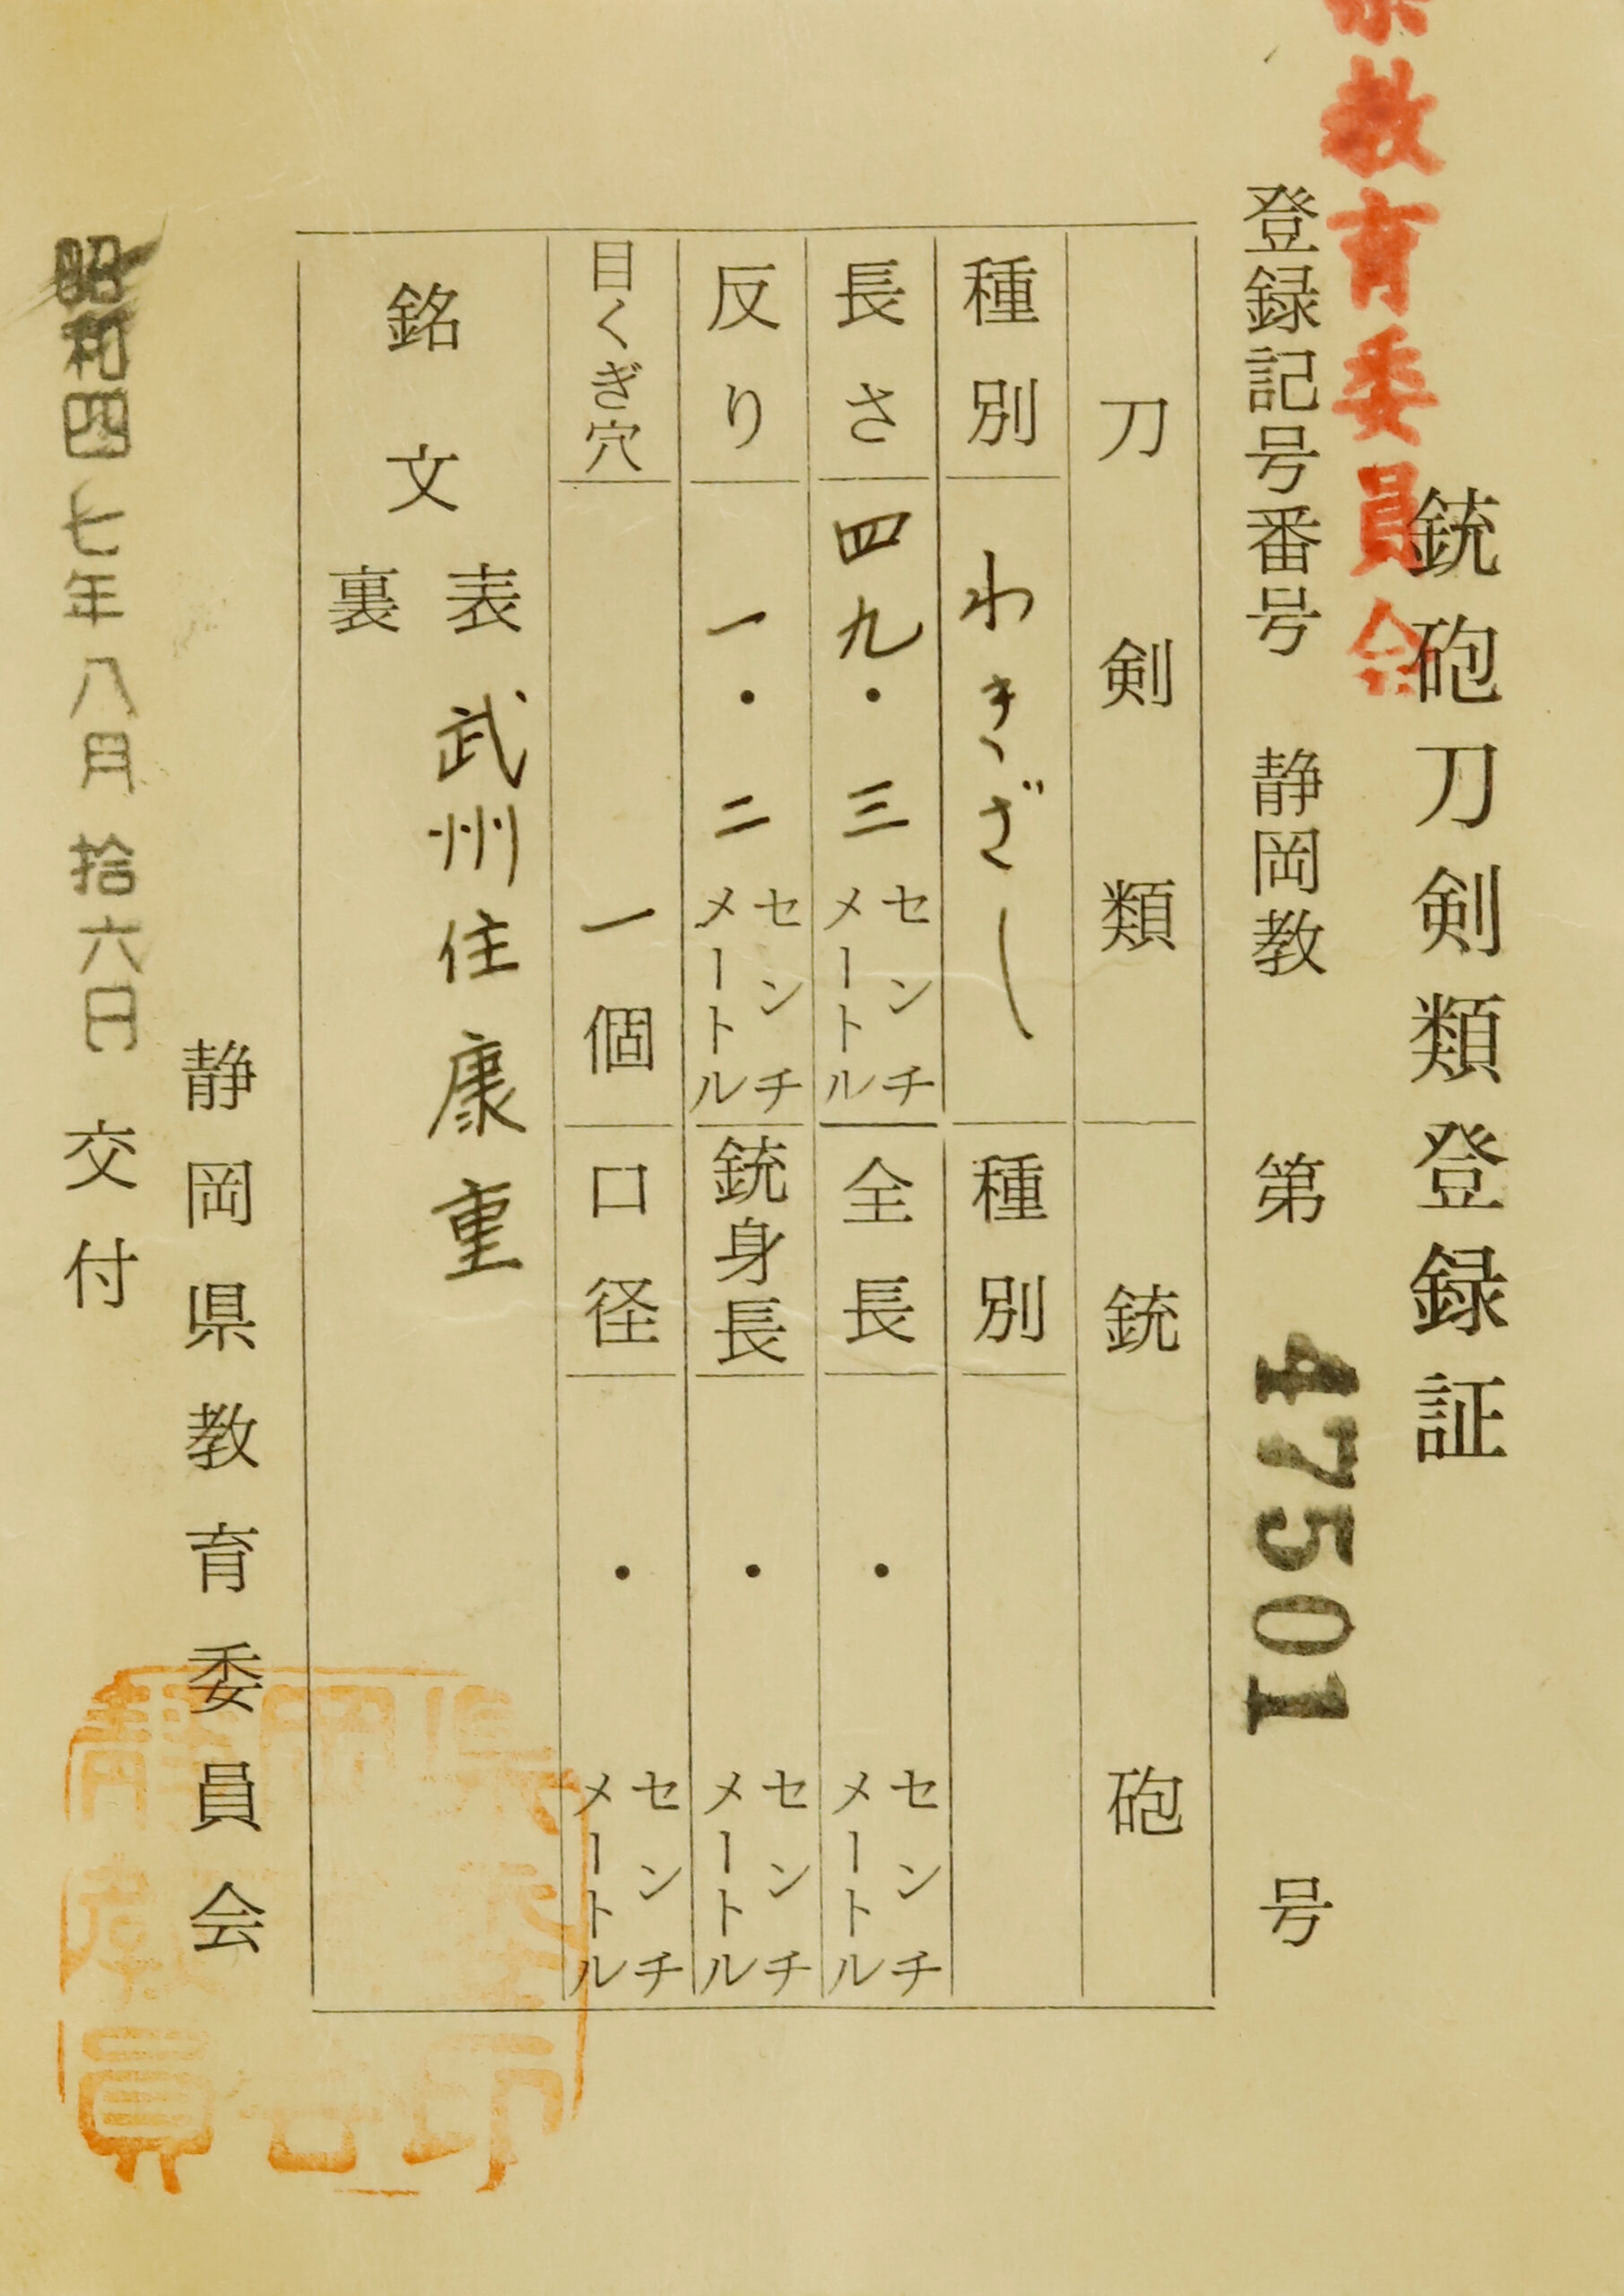 銃砲刀剣類登録証
教育委員会
登録記号番号 静岡教 第 47501 号
刀剣類 銃砲
種別 わきざし 種別
長さ 四九・三 センチメートル 全長 ・ センチメートル
反り 一・二 センチメートル 銃身長 ・ センチメートル
目くぎ穴 一個 口径 ・ センチメートル
銘文 表 武州住康重
裏
静岡県教育委員会
昭和四七年八月拾六日 交付